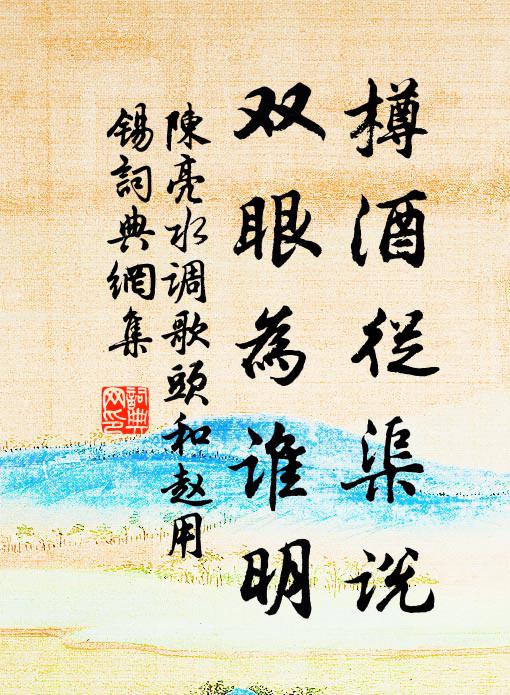 樽酒從渠说
双眼為谁明
陳亮水调歌頭和赵用
锡詞典網集
詞典网印